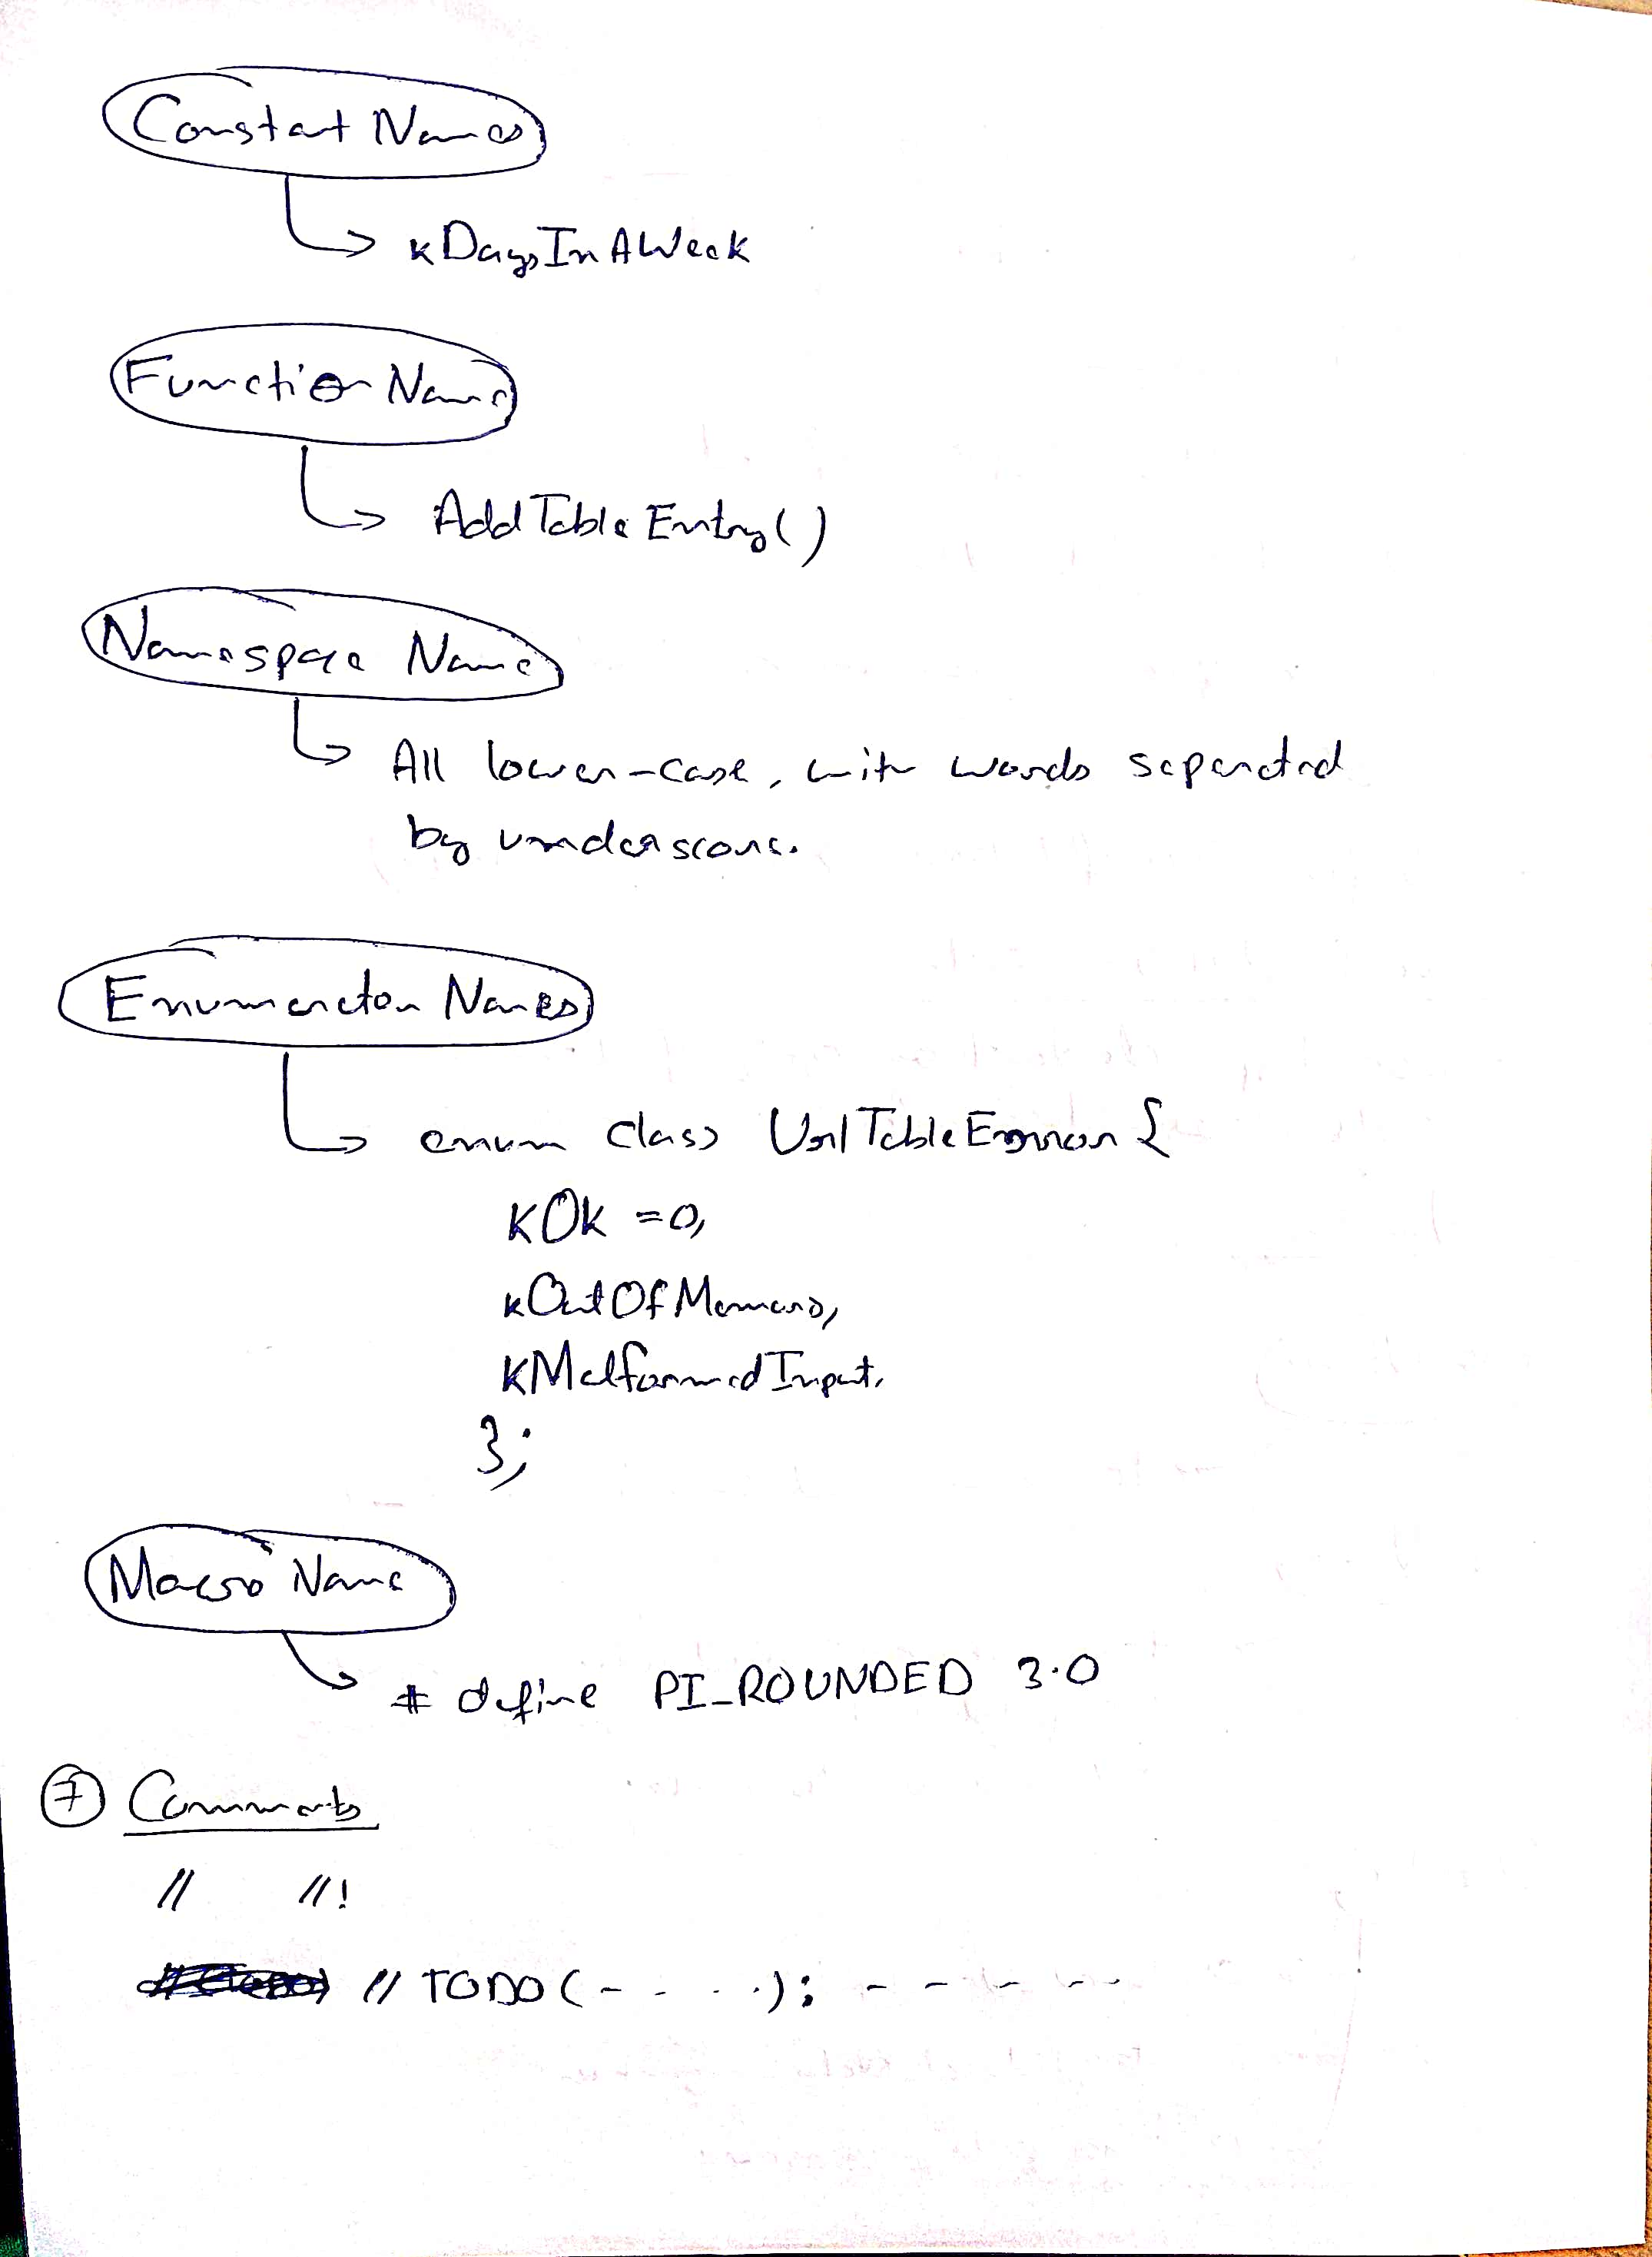 Constant Names
kDaysInAWeek
Function Name
AddTableEntry()
Namespace Name
All lower-case, with words separated
by underscore.
Enumerator Names
enum class UrlTableError {
kOk =0,
kOutOfMemory,
kMalformedInput,
};
Macro Name
# define PI_ROUNDED 3.0
7 Comments
// //!
// TODO(- - . .): - - - - -